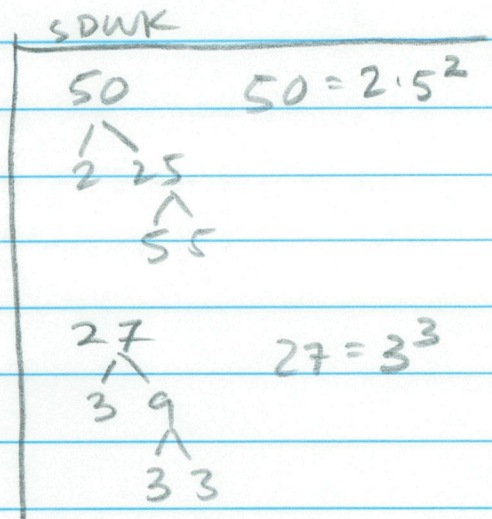 SDWK
50 50 = 2·5²
2 25
5 5
27 27 = 3³
3 9
3 3